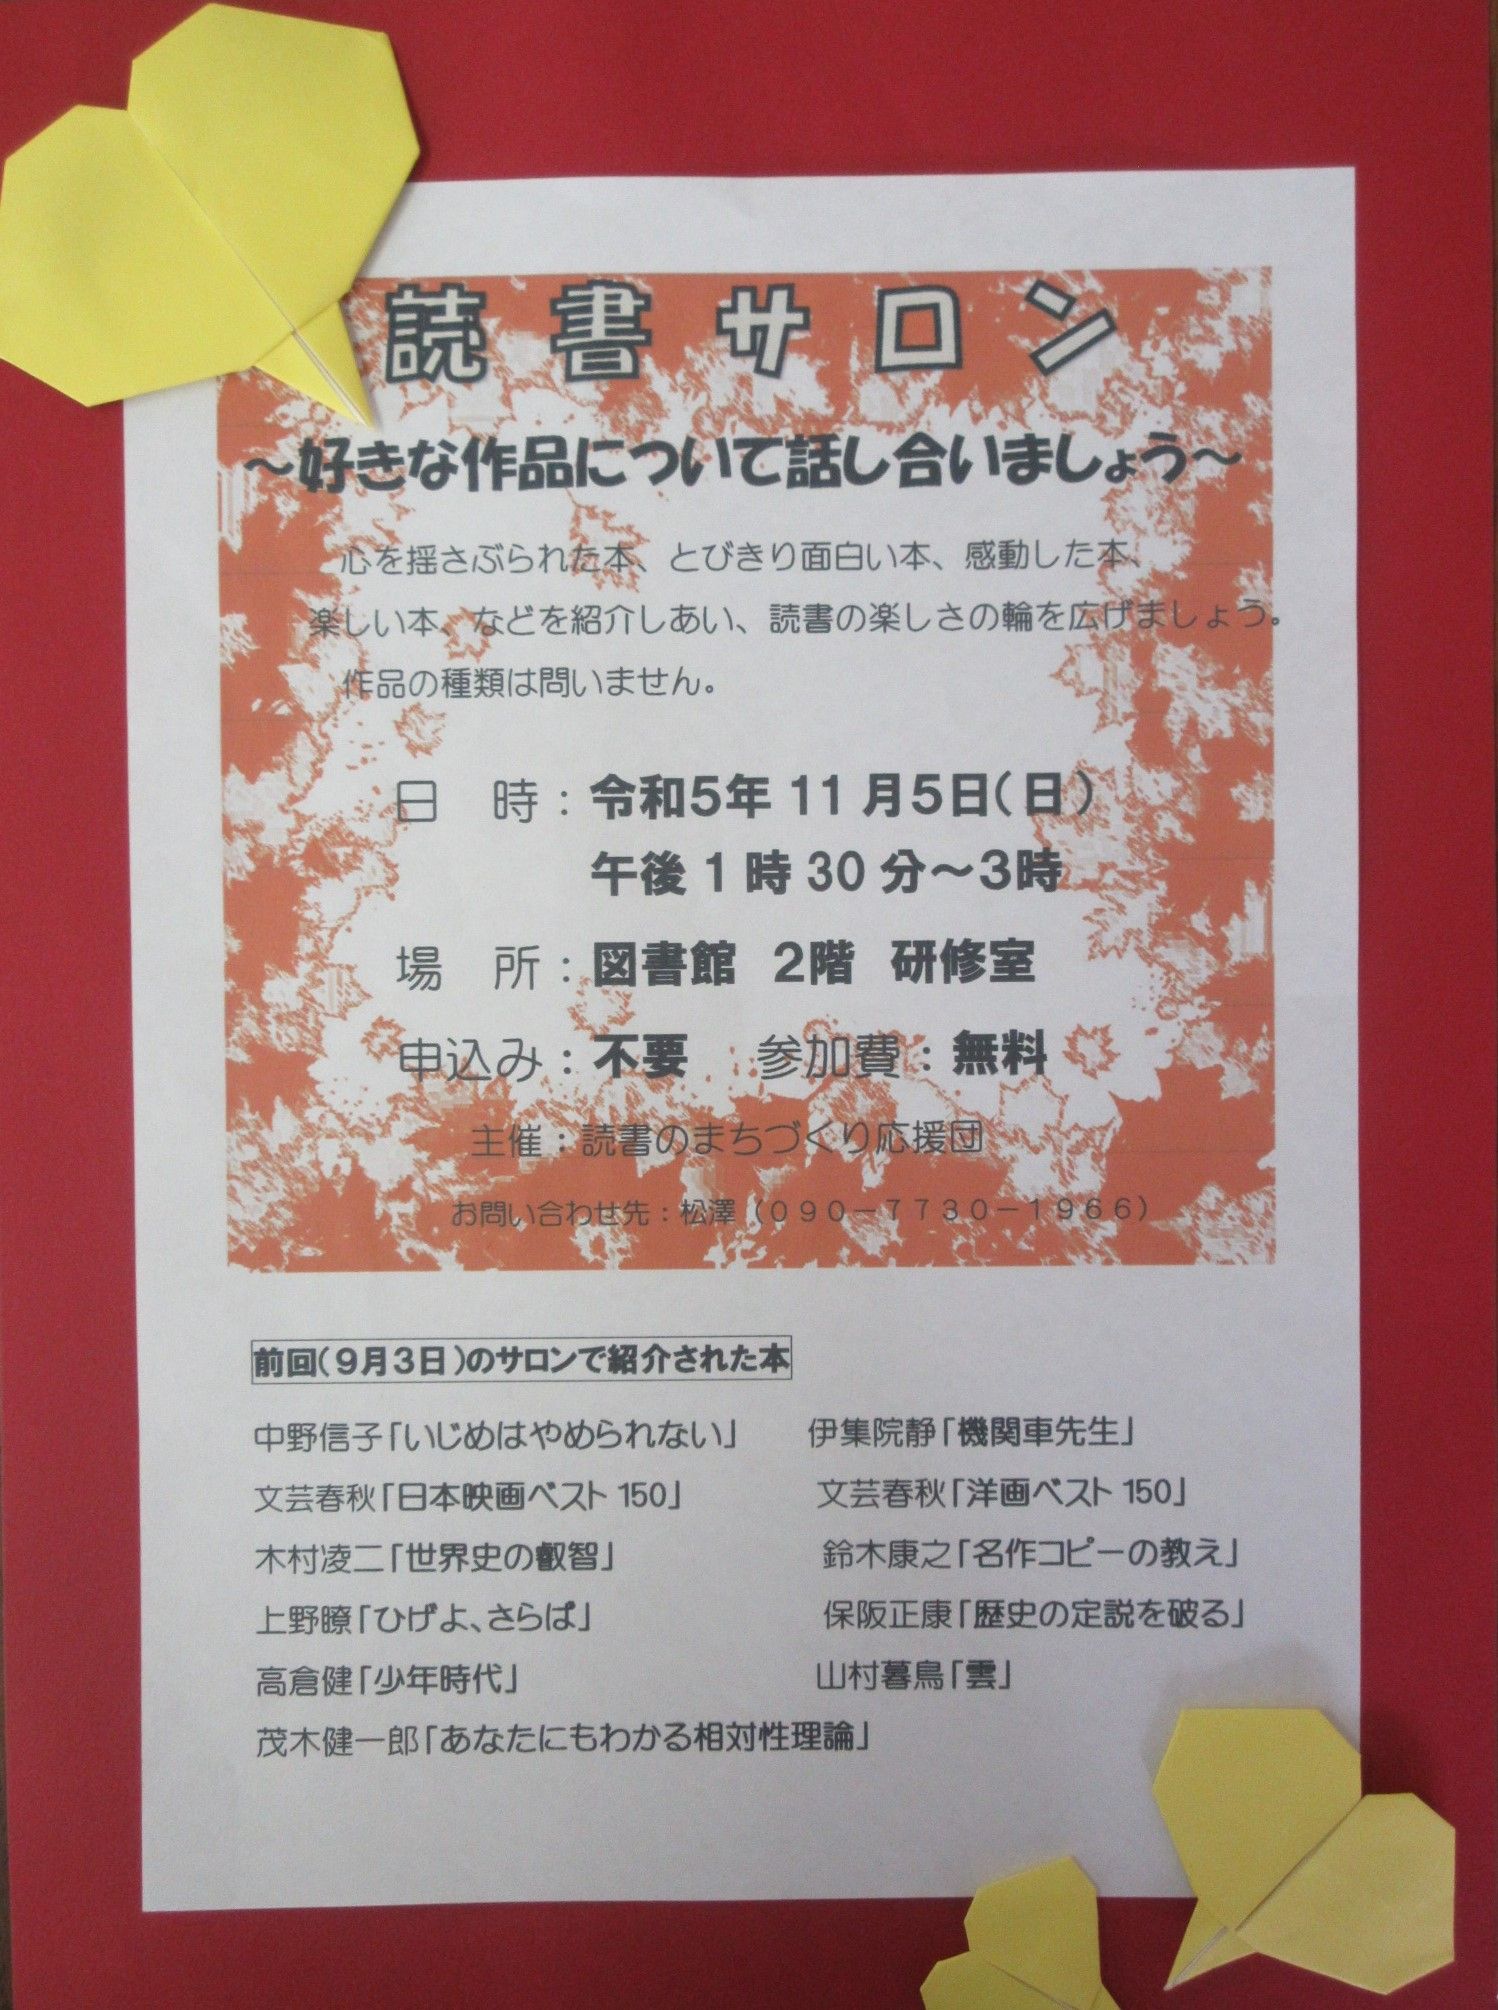 読書サロン
～好きな作品について話し合いましょう～
心を揺さぶられた本、とびきり面白い本、感動した本、
楽しい本、などを紹介しあい、読書の楽しさの輪を広げましょう。
作品の種類は問いません。
日　時：令和5年 11 月5日(日)
午後 1 時 30 分～3時
場　所：図書館　2階　研修室
申込み：不要　参加費：無料
主催：読書のまちづくり応援団
お問い合わせ先：松澤（０９０－７７３０－１９６６）
前回(9月3日)のサロンで紹介された本
中野信子「いじめはやめられない」　伊集院静「機関車先生」
文芸春秋「日本映画ベスト 150」　文芸春秋「洋画ベスト 150」
木村凌二「世界史の叡智」　鈴木康之「名作コピーの教え」
上野瞭「ひげよ、さらば」　保阪正康「歴史の定説を破る」
高倉健「少年時代」　山村暮鳥「雲」
茂木健一郎「あなたにもわかる相対性理論」